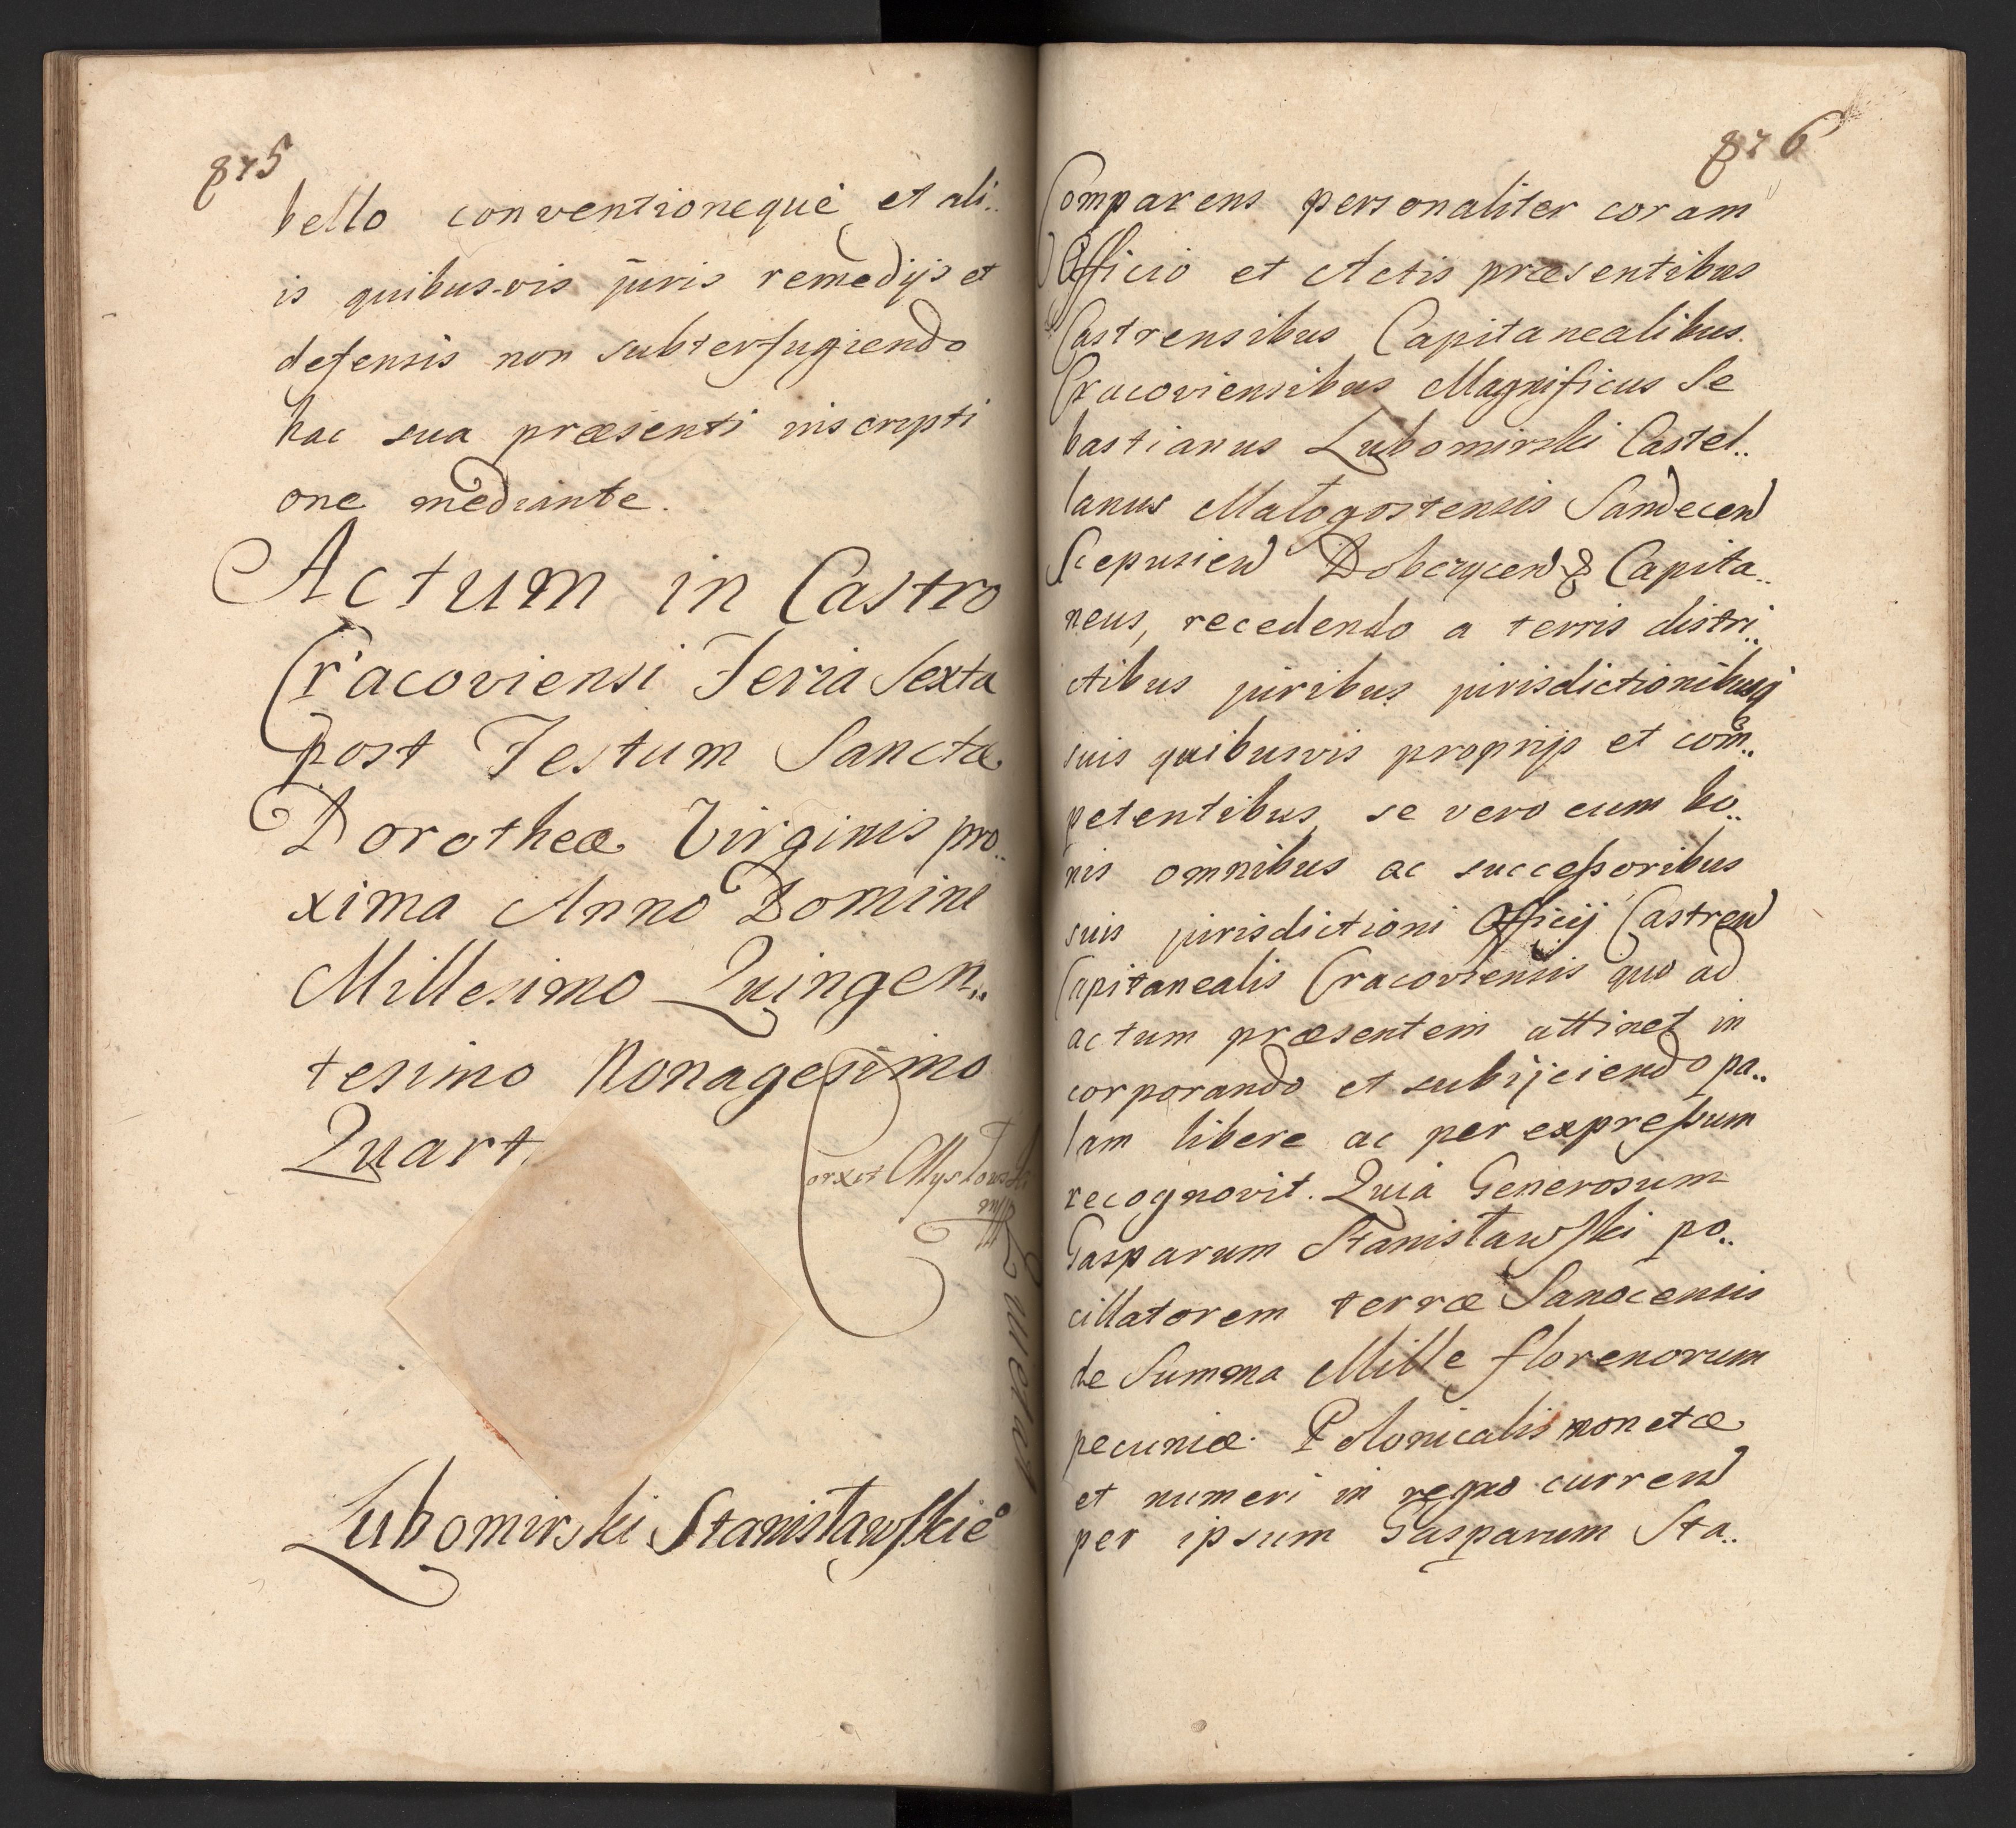 875
bello conventioneque et ali..
is quibus-vis juris remedijs et
defensis non subterfugiendo
hac sua præsenti inscripti
one mediante.
Actum in Castro
Cracoviensi Feria Sexta
post Festum Sanctæ
Dorotheæ Virginis pro..
xima Anno Domini
Millesimo Quingen..
tesimo Nonagesimo
Quart
Correxit Mysłowski
mpp
Lubomirski Stanisławskie
876
Comparens personaliter coram
Officio et Actis præsentibus
Castrensibus Capitanealibus.
Cracoviensibus Magnificus Se
bastianus Lubomirski Castel..
lanus Małogostensis Sandecen
Scepusien Dobczycen & Capita..
neus, recedendo a terris distri..
ctibus juribus jurisdictionibusq
suis quibusvis proprijs et com..
petentibus, se vero cum bo..
nis omnibus ac successoribus
suis jurisdictioni Officij Castren
Capitanealis Cracoviensis quo ad
actum præsentem attinet in
corporando et subijciendo pa..
lam libere ac per expressum
recognovit. Quia Generosum
Gasparum Stanisławski po..
cillatorem terræ Sanocensis
de Summa Mille florenorum
pecuniæ Polonicalis monetæ
et numeri in regno curren
per ipsum Gasparum Sta..